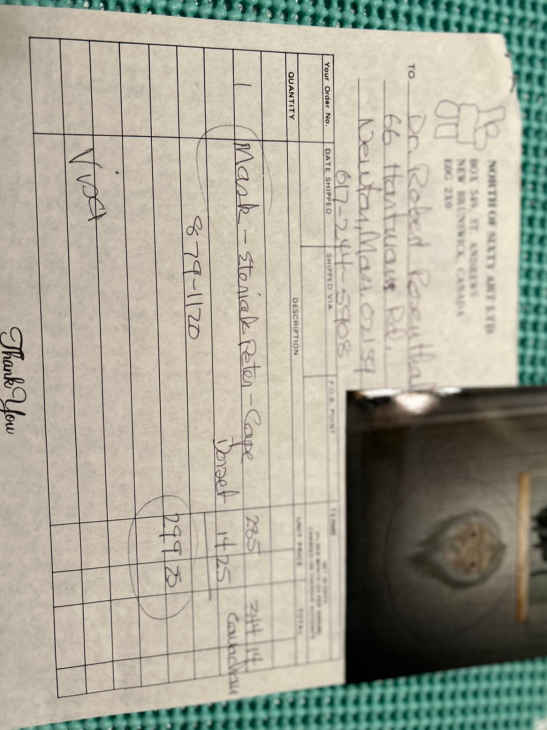 NORTH OF SIXTY ART LTD
BOX 505, ST. ANDREWS
NEW BRUNSWICK, CANADA
E0G 2X0
TO
Dr. Robert Rosenthal
66 Hartwave Rd.
Newton, Mass 02159
617-244-5908
Your Order No. DATE SHIPPED SHIPPED VIA F.O.B. POINT TERMS
QUANTITY DESCRIPTION UNIT PRICE TOTAL
1 Mask - Peter - Cape 285 344 14
Dorset 1425 Canadian
879-1120 299 25
Visa
Thank You